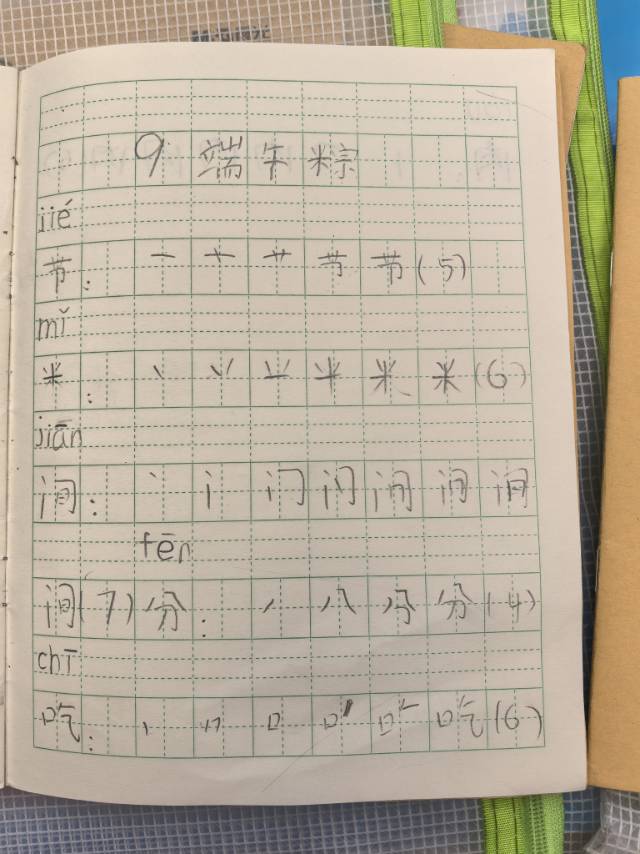 9 端午粽
jié
节: 一 十 艹 节 节(5)
mǐ
米: 丶 丷 米 米(6)
jiān
间: 丶 门 问 间 间
fēn
间(7) 分: 丿 八 分 分(4)
chī
吃: 丨 口 吃(6)